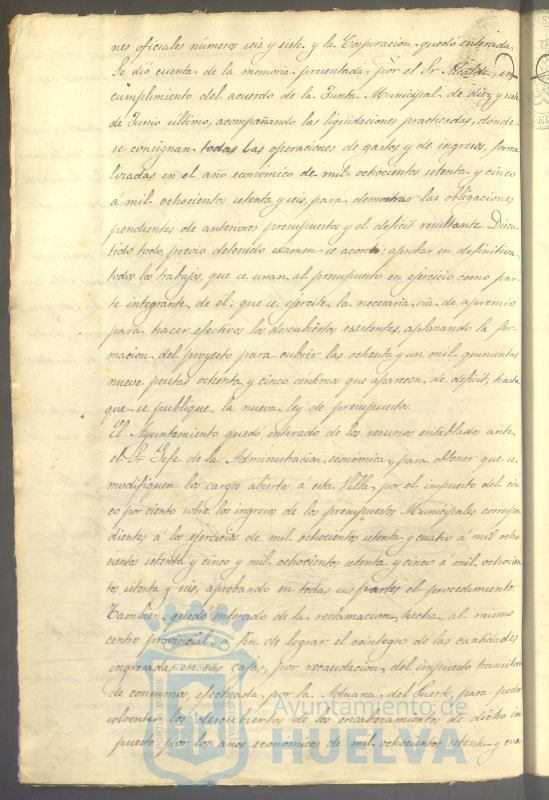 nes oficiales números seis y siete y la Corporación quedó enterada
Se dió cuenta de la memoria presentada por el Sr Alcalde, en
cumplimiento del acuerdo de la Junta Municipal de diez y seis
de Junio último, acompañando las liquidaciones practicadas, donde
se consignan todas las operaciones de gastos y de ingresos, forma
lizadas en el año económico de mil ochocientos setenta y cinco
á mil ochocientos setenta y seis, para demostrar las obligaciones
pendientes de anteriores presupuestos y el deficit resultante. Discu
tido todo, previo detenido examen se acordó: aprobar en definitiva
todos los trabajos, que se unan al presupuesto en ejercicio como par
te integrante de el: que se ejercite la necesaria via de apremio
para hacer efectivos los descubiertos existentes, aplazando la for
macion del proyecto para cubrir las ochenta y un mil quinientas
nueve pesetas ochenta y cinco centimos que aparecen de deficit, hasta
que se publique la nueva ley de presupuestos.
El Ayuntamiento quedo enterado de los recursos entablados ante
el Sr Jefe de la Administracion económica, para obtener que se
modifiquen los cargos abiertos á esta Villa, por el impuesto del cin
co por ciento sobre los ingresos de los presupuestos Municipales correspon
dientes á los ejercicios de mil ochocientos setenta y cuatro á mil ocho
cientos setenta y cinco y mil ochocientos setenta y cinco á mil ochocien
tos setenta y seis, aprobando en todas sus partes el procedimiento.
Tambien quedo enterado de la reclamacion, hecha al mismo
centro provincial á fin de lograr el reintegro de las cantidades
ingresadas en sus cajas, por recaudacion del impuesto transitorio
de consumos, efectuada por la Aduana del Puerto, para poder
solventar los descubiertos de los encabezamientos de dicho im
puesto por los años economicos de mil ochocientos setenta y cua
PORTUS MARIS
CUSTODIA
Ayuntamiento de
HUELVA